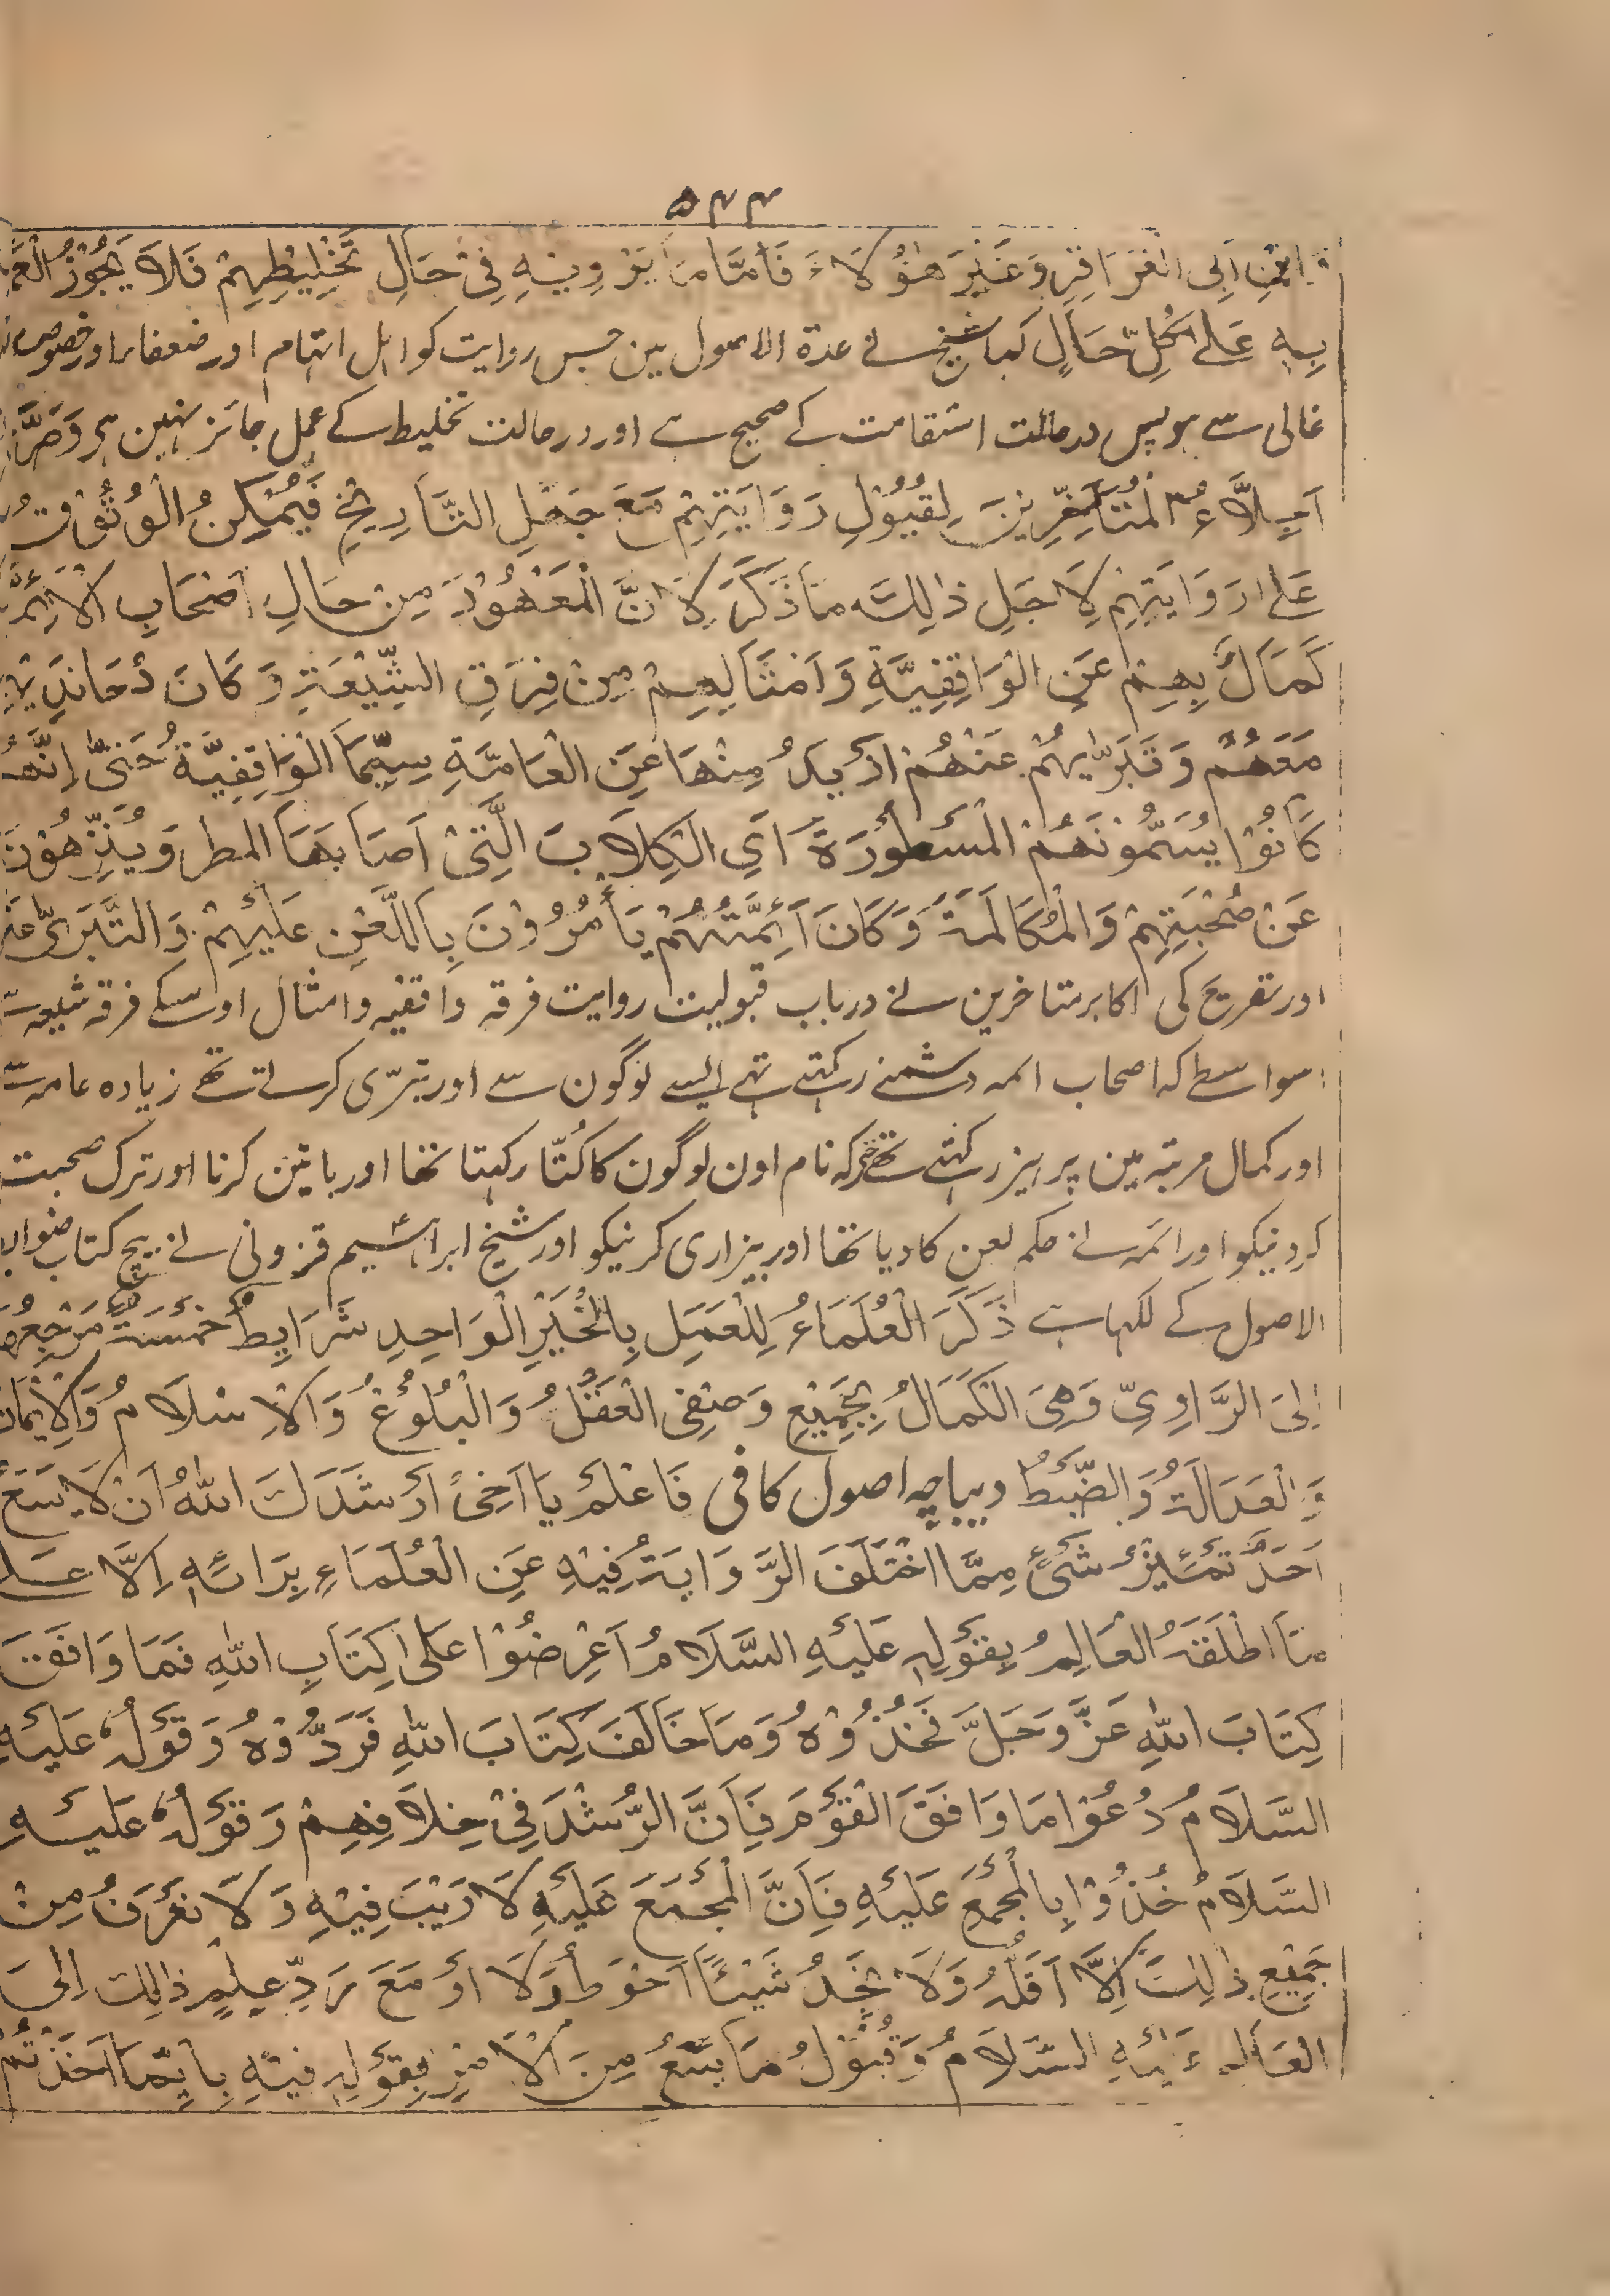 ۵۴۴
ابْنِ اَبِی الْعَزَاقِرِ وَغَيْرِ هٰؤُلَاءِ فَاَمَّا مَا يَرْوِيْنِهِ فِیْ حَالِ تَخْلِيْطِهِمْ فَلَا يَجُوْزُ
بِهٖ عَلٰی كُلِّ حَالٍ کہا شیخ نے عدۃ الاصول مین جس روایت کو اہل اتہام اور ضعفاء اور
غالی سے ہو پس درحالت استقامت کے صحیح ہے اور درحالت تخلیط کے عمل جائز نہین ہی
اَجِلَّاءُ الْمُتَأَخِّرِيْنَ لِقُبُوْلِ رَوَايَتِهِمْ مَعَ جَهْلِ التَّارِيْخِ فَيُمْكِنُ الْوُثُوْقُ
عَلٰی رَوَايَتِهِمْ لِاَجَلِ ذٰلِكَ مَا ذَكَرَ لِاَنَّ الْمَعْهُوْدَ مِنْ حَالِ اَصْحَابِ
بِهِمْ عَنِ الْوَاقِفِيَّةِ وَاَمْثَالِهِمْ مِنْ فِرَقِ الشِّيْعَةِ وَكَانَ
مَعَهُمْ وَتَبَرِّيْهِمْ عَنْهُمْ اَزْيَدُ مِنْهَا عَنِ الْعَامَّةِ سِيَّمَا الْوَاقِفِيَّةُ حَتّٰی اِنَّهُمْ
كَانُوْا يُسَمُّوْنَهُمْ الْمَسْطُوْرَةَ اَیِ الْكِلَابَ الَّتِیْ اَصَابَهَا المطر وَيُنَزِّهُوْنَ
عَنْ صُحْبَتِهِمْ وَالْمُكَالَمَةَ وَكَانَ اَئِمَّتُهُمْ يَأْمُرُوْنَ بِاللَّعْنِ عَلَيْهِمْ وَالتَّبَرِّیْ
اور تصریح کی اکابر متاخرین نے درباب قبولیت روایت فرقہ واقفیہ وامثال اوسکے فرقہ شیعہ
سواسطے کہ اصحاب ائمہ دشمنے رکہتے تہے ایسے لوگون سے اور تبرّی کرتے تھے زیادہ عامہ سے
اور کمال مرتبہ مین پرہیز رکہتے تھے کہ نام اون لوگون کا کُتّا رکہتا تھا اور باتین کرنا اور ترک صحبت
کردنیکو اور ائمہ نے حکم لعن کا دیا تھا اور بیزاری کرنیکو اور شیخ ابراہیم قزونی نے بیچ کتاب
الاصول کے لکہا ہے ذَكَرَ الْعُلَمَاءُ لِلْعَمَلِ بِالْخَبَرِ الْوَاحِدِ شَرَايِطُ خَمْسَةٌ
اِلَی الرَّاوِیِّ وَهِیَ الْكَمَالُ بِجَمِيْعِ وَصْفِی الْعَقْلُ وَالْبُلُوْغُ وَالْاِسْلَامُ وَالْاِيْمَانُ
وَالْعَدَالَةُ وَالضَّبْطُ دیباچہ اصول کافی فَاعْلَمْ يَا اَخِیْ اَرْشَدَكَ اللّٰهُ اَنْ لَا يَسَعَ
اَحَدٌ تَمَيْيزُ شَیْءٍ مِمَّا اخْتَلَفَ الرَّوَايَةُ فِيْهِ عَنِ الْعُلَمَاءِ بِرَائِهٖ اِلَّا عَلٰی
مَا اَطْلَقَهُ الْعَالِمُ بِقَوْلِهٖ عَلَيْهِ السَّلَامُ اَعْرِضُوْا عَلٰی كِتَابِ اللّٰهِ فَمَا وَافَقَ
كِتَابَ اللّٰهِ عَزَّ وَجَلَّ فَخُذُوْهُ وَمَا خَالَفَ كِتَابَ اللّٰهِ فَرَدُّوْهُ وَقَوْلُهٗ عَلَيْهِ
السَّلَامُ دُعُوْا مَا وَافَقَ الْقَوْمَ فَاِنَّ الرُّشْدَ فِیْ خِلَافِهِمْ وَقَوْلُهٗ عَلَيْهِ
السَّلَامُ خُذُوْا بِالْمُجْمَعِ عَلَيْهِ فَاِنَّ الْمُجْمَعَ عَلَيْهِ لَا رَيْبَ فِيْهِ وَلَا نَعْرِفُ مِنْ
جَمِيْعِ ذٰلِكَ اِلَّا اَقَلَّهُ وَلَا نَجِدُ شَيْئًا اَحْوَطُ وَلَا اَوْ مَعَ رَدِّ عِلْمِ ذٰلِكَ اِلَی
الْعَالِمِ عَلَيْهِ السَّلَامُ وَقُبُوْلُ مَا يَسَعُ مِنَ الْاَمْرِ بِقَوْلِهٖ فِيْهِ بِاَيِّمَا اَخَذْتُمْ